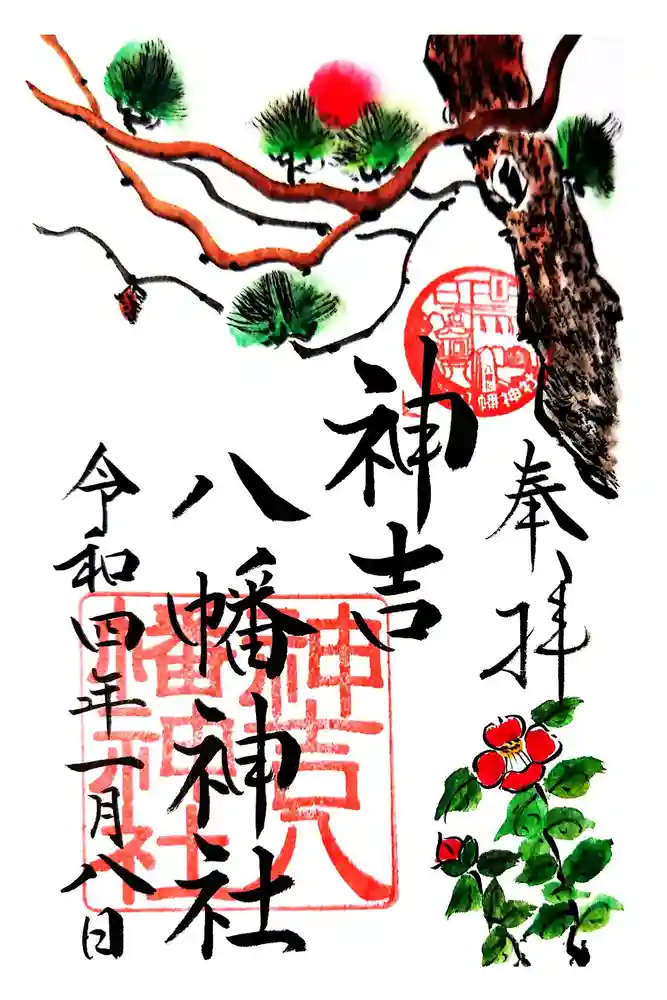 奉拝
神吉
八幡神社
令和四年一月八日
神吉八
幡神社
幡神社